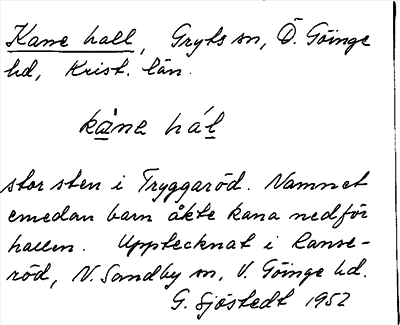 Kane hall, Gryts sn, Ö. Göinge
hd, Krist. län.
kàne hál
stor sten i Tryggaröd. Namnet
emedan barn åkte kana nedför
hallen. Upptecknat i Ranse-
röd, N. Sandby sn, V. Göinge hd.
G. Sjöstedt 1952